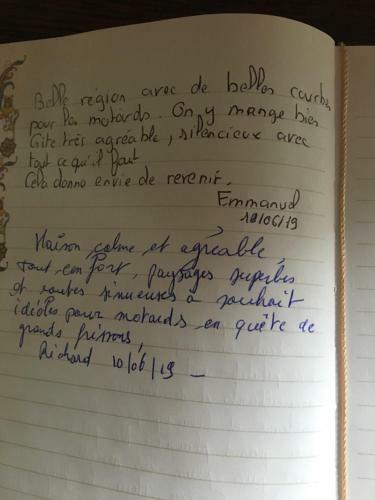 Belle région avec de belles courbes
pour les motards. On y mange bien
Gite très agréable, silencieux avec
tout ce qu'il faut
Cela donne envie de revenir.
Emmanuel
10/06/19
Maison calme et agréable,
tout confort, paysages superbes
et routes sinueuses à souhait
idéales pour motards en quête de
grands frissons,
Richard 10/06/19 _